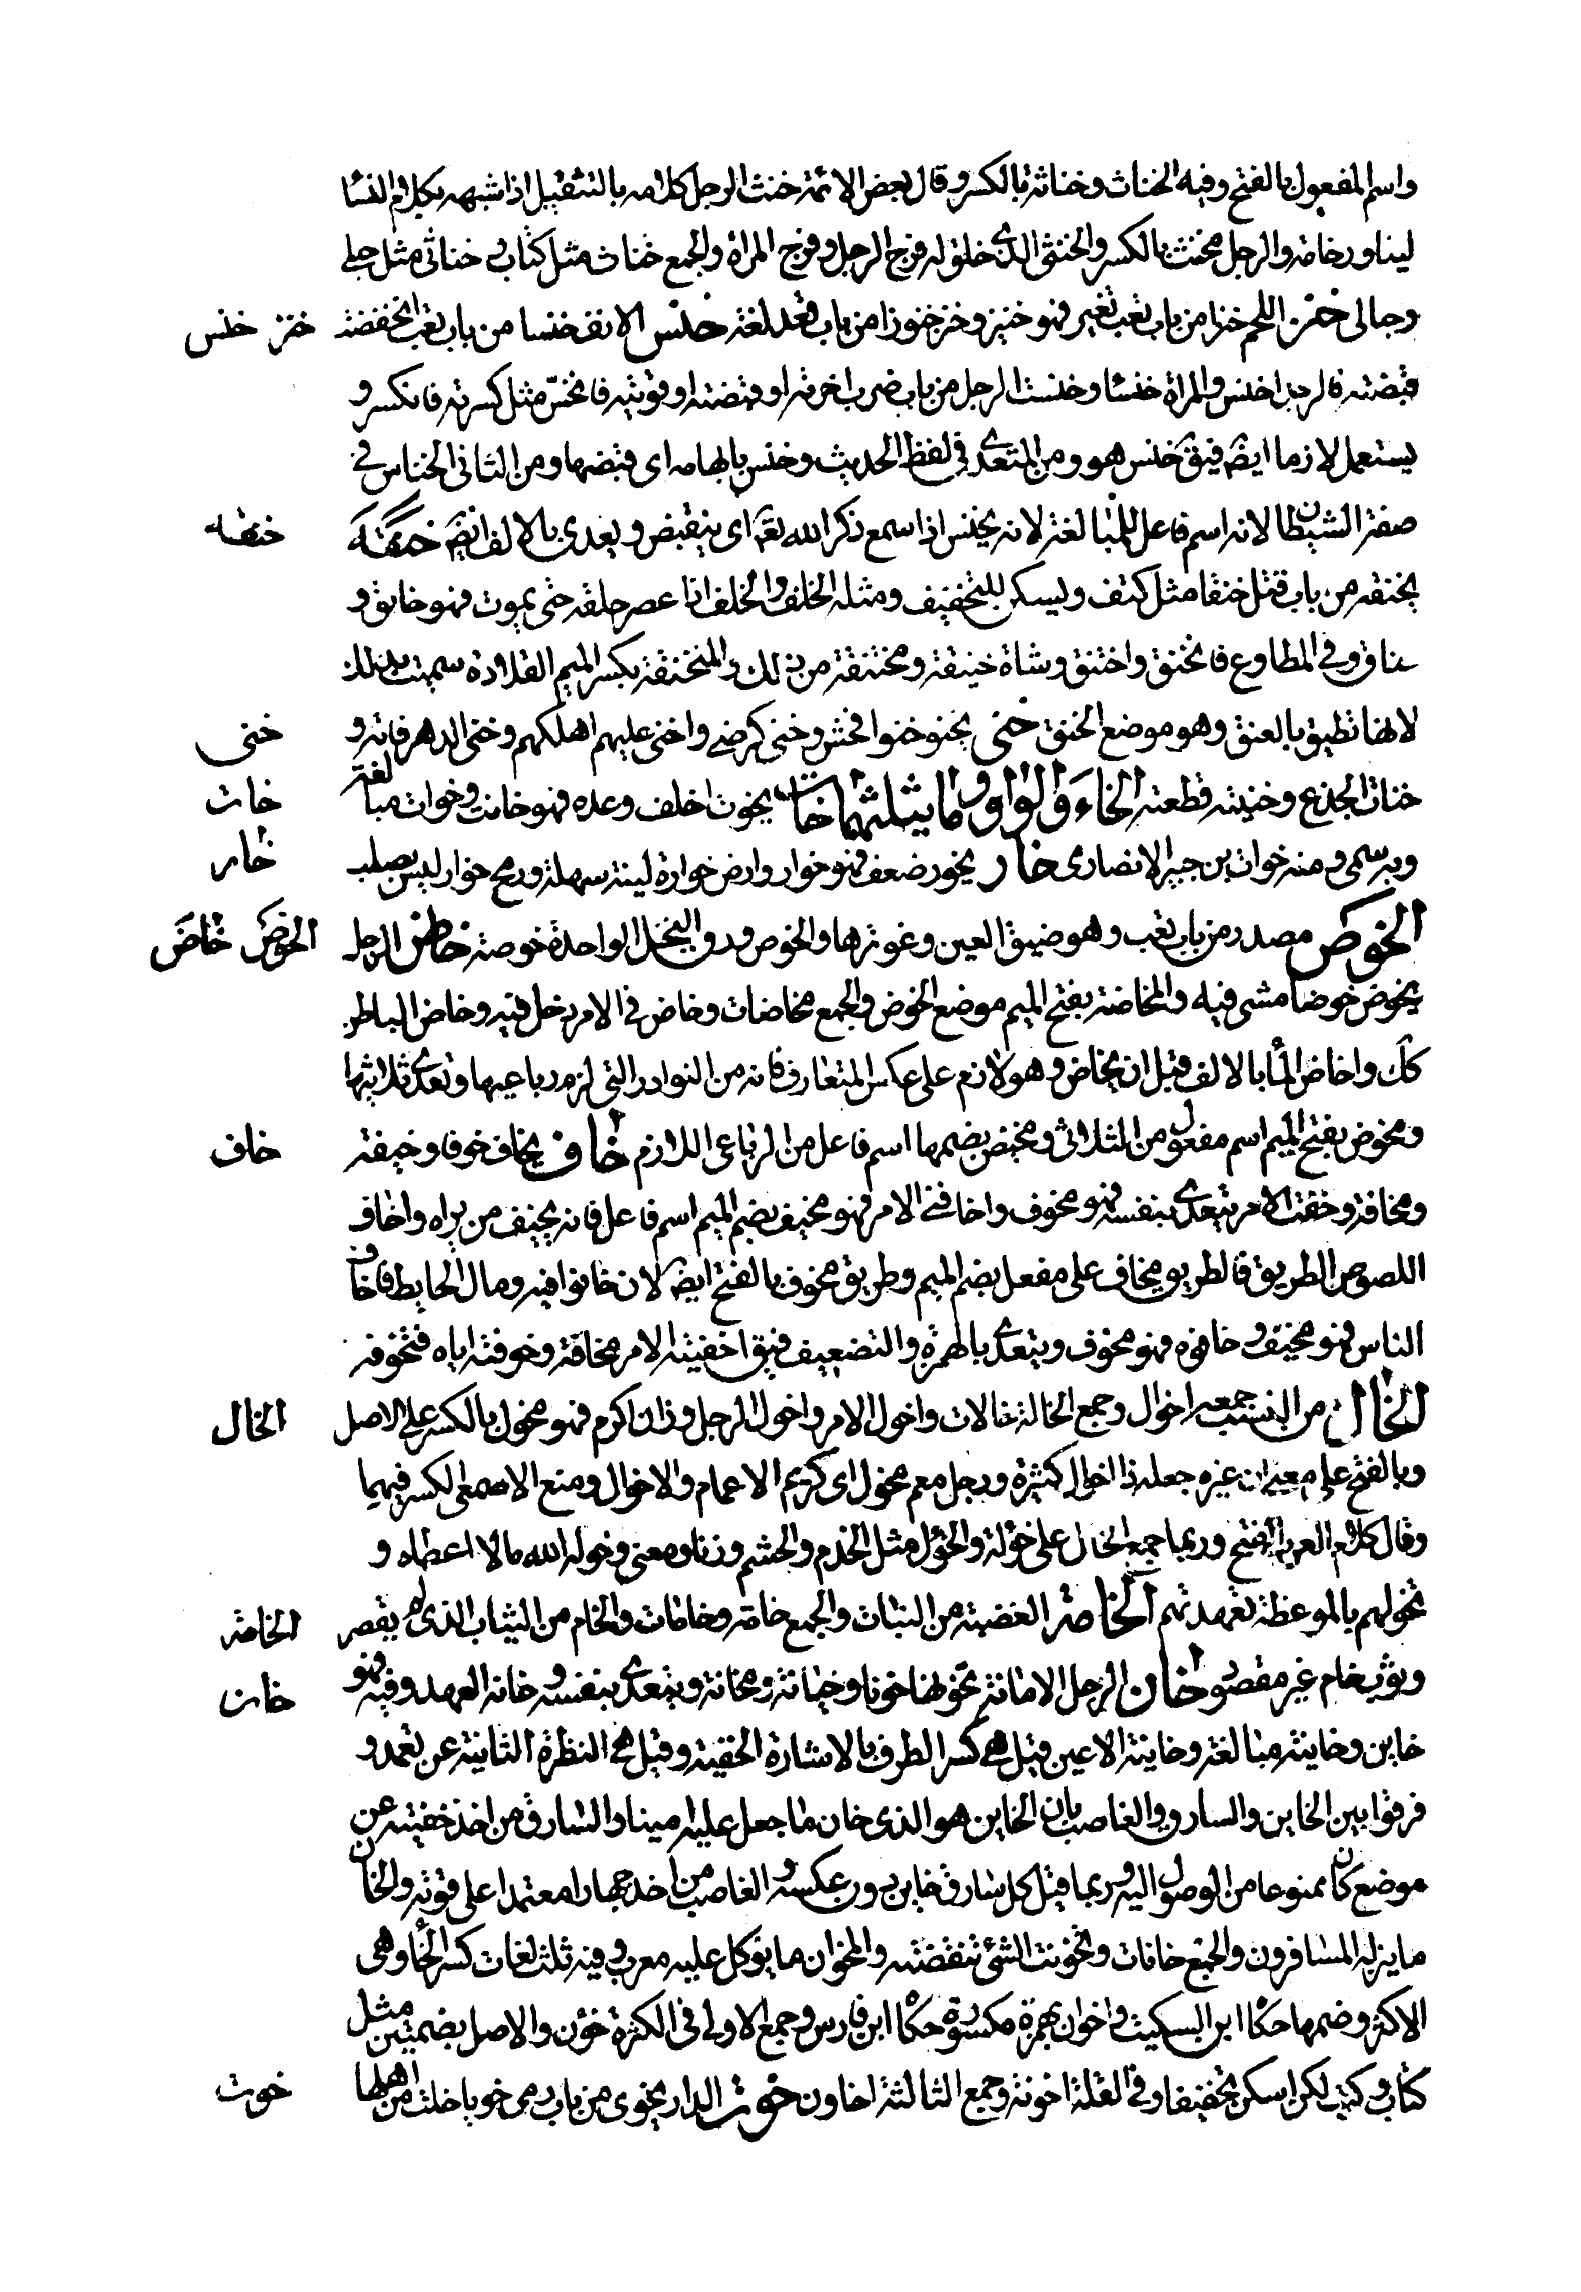 واسم المفعول بالفتح وفيه الخناث وخناثة بالكسر وقال بعض الائمة خنث الرجل كلامه بالتثقيل اذا شبهه بكلام النسا
لينا ورخامة والرجل مخنث بالكسر والخنثى الذى خلق له فرج الرجل وفرج المراة والجمع خناث مثل كتاب وخناثى مثل حبلى
وحبالى خنز اللحم خنزا من باب تعب تغير فهو خنز وخنز خنوزا من باب قعد لغة خنس الانف خنسا من باب تعب انخفضت
خنز خنس
قصبته فالرجل اخنس والمراة خنسا وخنست الرجل من باب ضرب اخرته او قبضته او زويته فانخنس مثل كسرته فانكسر و
يستعمل لازما ايضم فيق خنس هو ومن المتعدى فى لفظ الحديث وخنس بابهامه اى قبضها ومن الثانى الخناس فى
صفة الشيطان لانه اسم فاعل للمبالغة لانه يخنس اذا سمع ذكر الله تعم اى ينقبض ويعدى بالالف ايضم خنقه
خنقه
يخنقه من باب قتل خنقا مثل كتف ويسكن للتخفيف ومثله الحلف والحلف اذا عصر حلقه حتى يموت فهو خانق و
خناق وفى المطاوع فانخنق واختنق وشاة خنيقة ومختنقة من ذلك والمخنقة بكسر الميم القلادة سميت بذلك
لانها تطيق بالعنق وهو موضع الخنق خنى يخنو خنوا فحش وخنى كرضى واخنى عليهم اهلكهم وخنى الدهر فاته و
خنى
خنات الجذع وخنيته قطعته الخاء والواو وما يثلثهما خات يخوت اخلف وعده فهو خائت وخوات مبالغة
خات
وبه سمى ومنه خوات بن جبير الانصارى خار يخور ضعف فهو خوار وارض خوارة لينة سهلة ورمح خوار ليس بصلب
خار
الخوص مصدر من باب تعب وهو ضيق العين وغورها والخوص ورق النخل الواحدة خوصة خاض الرجل
الخوص خاض
يخوض خوضا مشى فيه والمخاضة بفتح الميم موضع الخوض والجمع مخاضات وخاض فى الامر دخل فيه وخاض الباطل
كك واخاض الما بالالف قبل ان يخاض وهو لازم على عكس المتعارف فانه من النوادر التى لزم رباعيها وتعدى ثلاثيها
ومخوض بفتح الميم اسم مفعول من الثلاثى ومخيض بضمها اسم فاعل من الرباعى اللازم خاف يخاف خوفا وخيفة
خاف
ومخافة وخفت الامر يتعدى بنفسه فهو مخوف واخافنى الامر فهو مخيف بضم الميم اسم فاعل فانه يخيف من يراه واخاف
اللصوص الطريق فالطريق مخاف على مفعل بضم الميم وطريق مخوف بالفتح ايضم لان خافوا فيه ومال الحايط فاخاف
الناس فهو مخيف وخافوه فهو مخوف ويتعدى بالهمزة والتضعيف فيق اخفيته الامر مخافة وخوفته اياه فتخوفه
الخال من النسب جمعه اخوال وجمع الخالة خالات واخول الامر واخول الرجل وزان اكرم فهو مخول بالكسر على الاصل
الخال
وبالفتح على معنى ان غيره جعله ذا اخوال كثيرة ورجل معم مخول اى كريم الاعمام والاخوال ومنع الاصمعى الكسر فيهما
وقال كلام العرب الفتح وربما جمع الخال على خؤلة والخول مثل الخدم والحشم وزنا ومعنى وخوله الله مالا اعطاه و
تخولهم بالموعظة تعهدهم الخامة الغضة من النبات والجمع خامة وخامات والخام من الثياب الذى لم يقصر
الخامة
وثوب خام غير مقصور خان الرجل الامانة يخونها خونا وخيانة ومخانة ويتعدى بنفسه وخانه العهد وفيه فهو
خان
خاين وخاينة مبالغة وخاينة الاعين قيل هى كسر الطرف بالاشارة الخفية وقيل هى النظرة الثانية عن تعمد و
فرقوا بين الخاين والسارق والغاصب بان الخاين هو الذى خان ما جعل عليه امينا والسارق من اخذ خفية عن
موضع كان ممنوعا من الوصول اليه وربما قيل كل سارق خاين دون عكسه والغاصب من اخذ جهارا معتمدا على قوته والخان
ما ينزله المسافرون والجمع خانات وتخونت الشئ تنقصته والخوان ما يؤكل عليه معرب وفيه ثلث لغات كسر الخا وهى
الاكثر وضمها حكاه ابن السكيت واخوان بهمزة مكسورة حكاه ابن فارس وجمع الاولى فى الكثرة خون والاصل بضمتين مثل
كتاب وكتب لكن اسكن تخفيفا وفى القلة اخونة وجمع الثالثة اخاون خوت الدار يخوى من باب رمى خويا خلت من اهلها
خوت